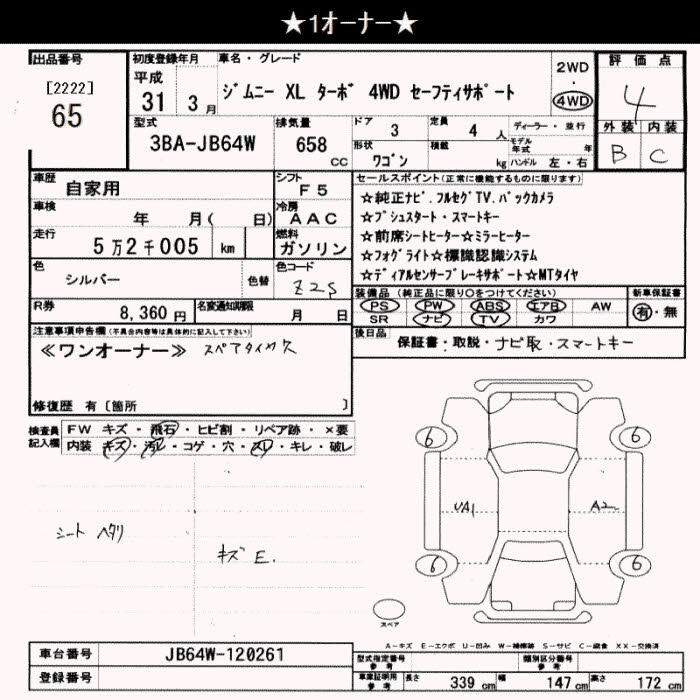 ★1オーナー★
出品番号
[2222]
65
初度登録年月
平成
31 3月
車名・グレード
ジムニー XL ターボ 4WD セーフティサポート
2WD
・
4WD
評価点
4
外装 内装
B C
型式
3BA-JB64W
排気量
658
cc
ドア
3
定員
4 人
形状
ワゴン
積載
kg
ディーラー・並行
モデル年式
年
ハンドル 左・右
車歴
自家用
シフト
F5
車検
年 月( 日)
冷房
AAC
走行
5万2千005 km
燃料
ガソリン
色
シルバー
色替
色コード
Z2S
R券
8,360円
名変通知期限
月 日
セールスポイント(正常に機能するものに限ります)
☆純正ナビ.フルセグTV.バックカメラ
☆プシュスタート・スマートキー
☆前席シートヒーター☆ミラーヒーター
☆フォグライト☆標識認識システム
☆ディアルセンサーブレーキサポート☆MTタイヤ
装備品(純正品に限り○をつけてください)
PS PW ABS エアB AW
SR ナビ TV カワ
新車保証書
有・無
後日品
保証書・取説・ナビ取・スマートキー
注意事項申告欄(不具合内容等は具体的に記入して下さい)
≪ワンオーナー≫ スペアタイヤ欠
修復歴 有〔箇所 〕
検査員
記入欄
FW キズ・飛石・ヒビ割・リペア跡・×要
内装 キズ・汚レ・コゲ・穴・スレ・キレ・破レ
シート ヘタリ
キズE.
6 6
UA1 A2
6 6
スペア
A-キズ E-エクボ U-凹み W-補修跡 S-サビ C-腐食 XX-交換済
車台番号
JB64W-120261
登録番号
型式指定番号
参考
類別区分番号
参考
車庫証明用
参考
長さ 339 cm 幅 147 cm 高さ 172 cm